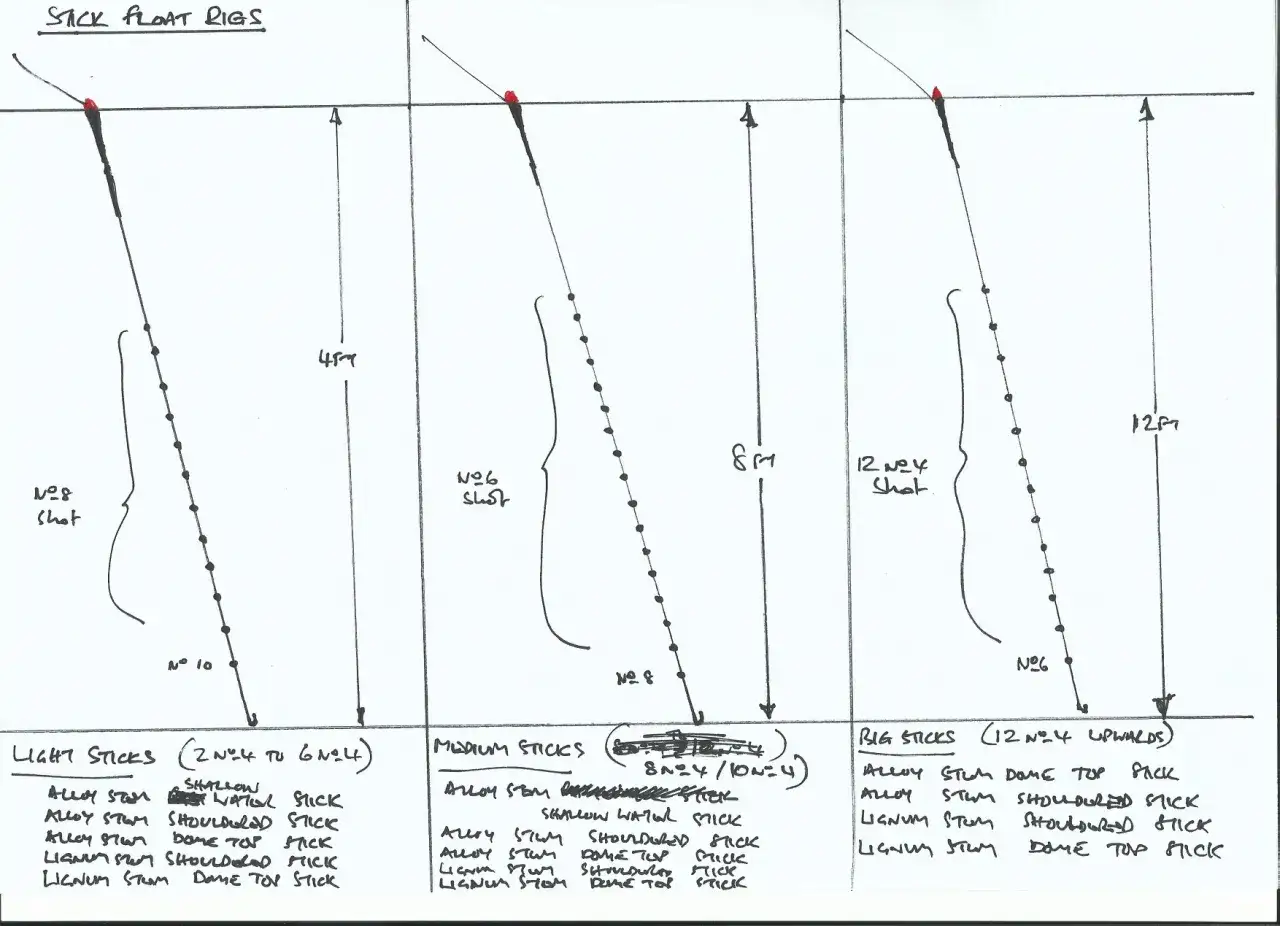 STICK FLOAT RIGS
4FT
No8
Shot
No 10
LIGHT STICKS (2 No4 TO 6 No4)
SHALLOW
ALLOY STEM WATER STICK
ALLOY STEM SHOULDERED STICK
ALLOY STEM DOME TOP STICK
LIGNUM STEM SHOULDERED STICK
LIGNUM STEM DOME TOP STICK
8FT
No6
Shot
No 8
MEDIUM STICKS
8 No4 / 10 No4)
ALLOY STEM
SHALLOW WATER STICK
ALLOY STEM SHOULDERED STICK
ALLOY STEM DOME TOP STICK
LIGNUM STEM SHOULDERED STICK
LIGNUM STEM DOME TOP STICK
12FT
12 No4
Shot
No6
BIG STICKS (12 No4 UPWARDS)
ALLOY STEM DOME TOP STICK
ALLOY STEM SHOULDERED STICK
LIGNUM STEM SHOULDERED STICK
LIGNUM STEM DOME TOP STICK